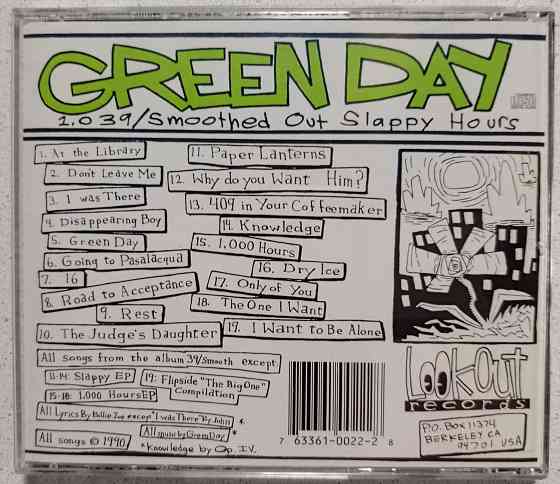 GREEN DAY
1,039/Smoothed Out Slappy Hours
1. At the Library
2. Don't Leave Me
3. I was There
4. Disappearing Boy
5. Green Day
6. Going to Pasalacqua
7. 16
8. Road to Acceptance
9. Rest
10. The Judge's Daughter
11. Paper Lanterns
12. Why do you Want Him?
13. 409 in Your Coffeemaker
14. Knowledge
15. 1,000 Hours
16. Dry Ice
17. Only of You
18. The One I Want
19. I Want to Be Alone
All songs from the album 39/Smooth except
11-14: Slappy EP
15-18: 1,000 Hours EP
19: Flipside "The Big One" Compilation
All Lyrics By Billie Joe except "I was There" By John
All songs © 1990
All music by Green Day *
*Knowledge by Op. I.V.
7 63361-0022-2 8
LookOut
records
P.O. Box 11374
BERKELEY CA
94701 USA